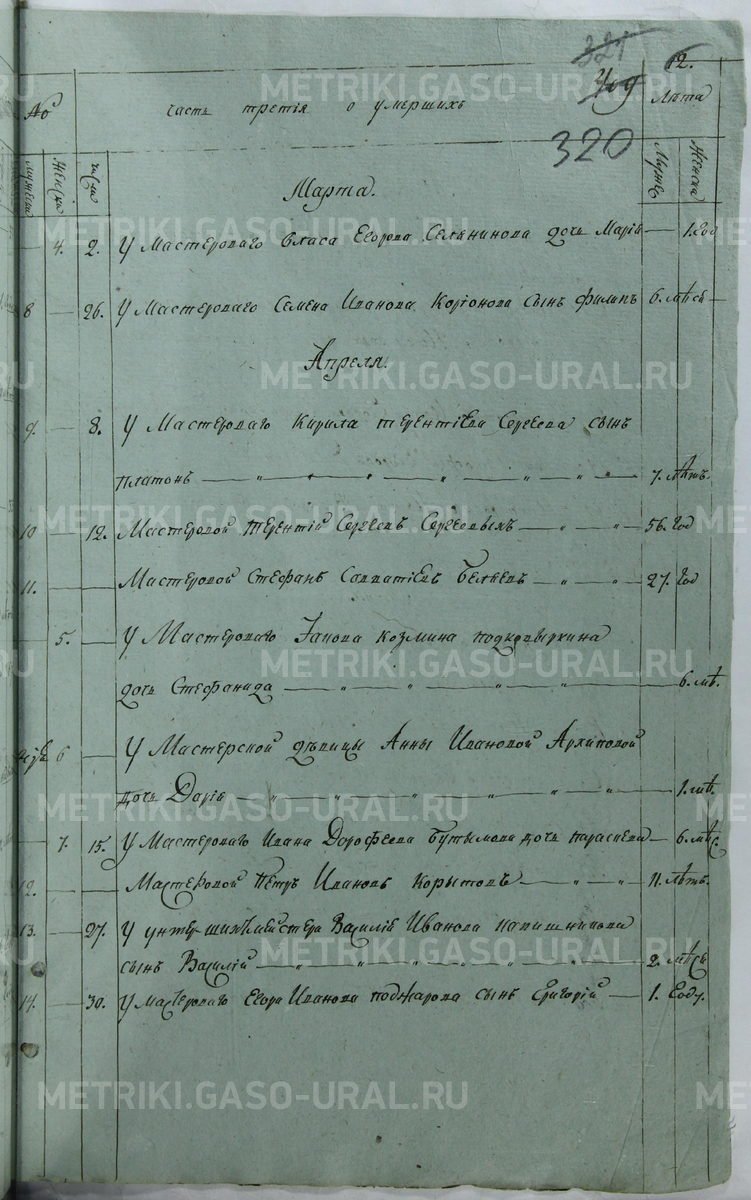 321
409
320
12.
№
часть третія о умершихъ
Лѣта
мужеска
женска
числа
Муже
Женска
Марта.
4. 2. У Мастероваго Власа Егорова Селянинова дочь Марія — 1. год
8 — 26. У Мастероваго Семена Иванова Корюнова сынъ Филипъ 6. мѣся
Апреля.
9. — 8. У Мастероваго Кирила терентіева Сергеева сынъ
платонъ — 7. лѣтъ.
10 — 12. Мастеровой терентій Сергеевъ Сергеевыхъ — 56. год
11. — Мастеровой Стефанъ Савватіевъ Беляевъ — 27. год
5. — У Мастероваго Іакова козмина подковыркина
дочь Стефанида — 6. лѣ.
6 — У Мастерской дѣвицы Анны Ивановой Архиповой
дочь Дарія — 1. лѣ.
7. 15. У Мастероваго Ивана Дорофеева Бутымова дочь параскева — 6. мѣс.
12. — Мастеровой Петръ Ивановъ Корытовъ — 11. лѣтъ.
13. — 27. У унтеръ шихтмейстера Василія Иванова папишникова
сынъ Василій — 2. мѣся
14. — 30. У мастероваго Егора Иванова поджарова сынъ Григорій — 1. году.
METRIKI.GASO-URAL.RU